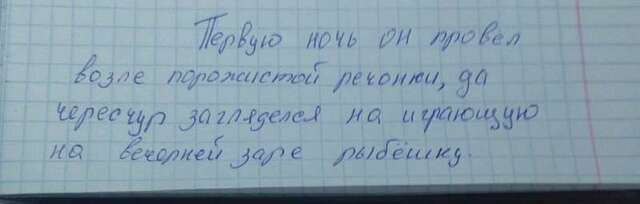 Первую ночь он провел
возле порожистой речонки, да
чересчур загляделся на играющую
на вечорней заре рыбёшку.